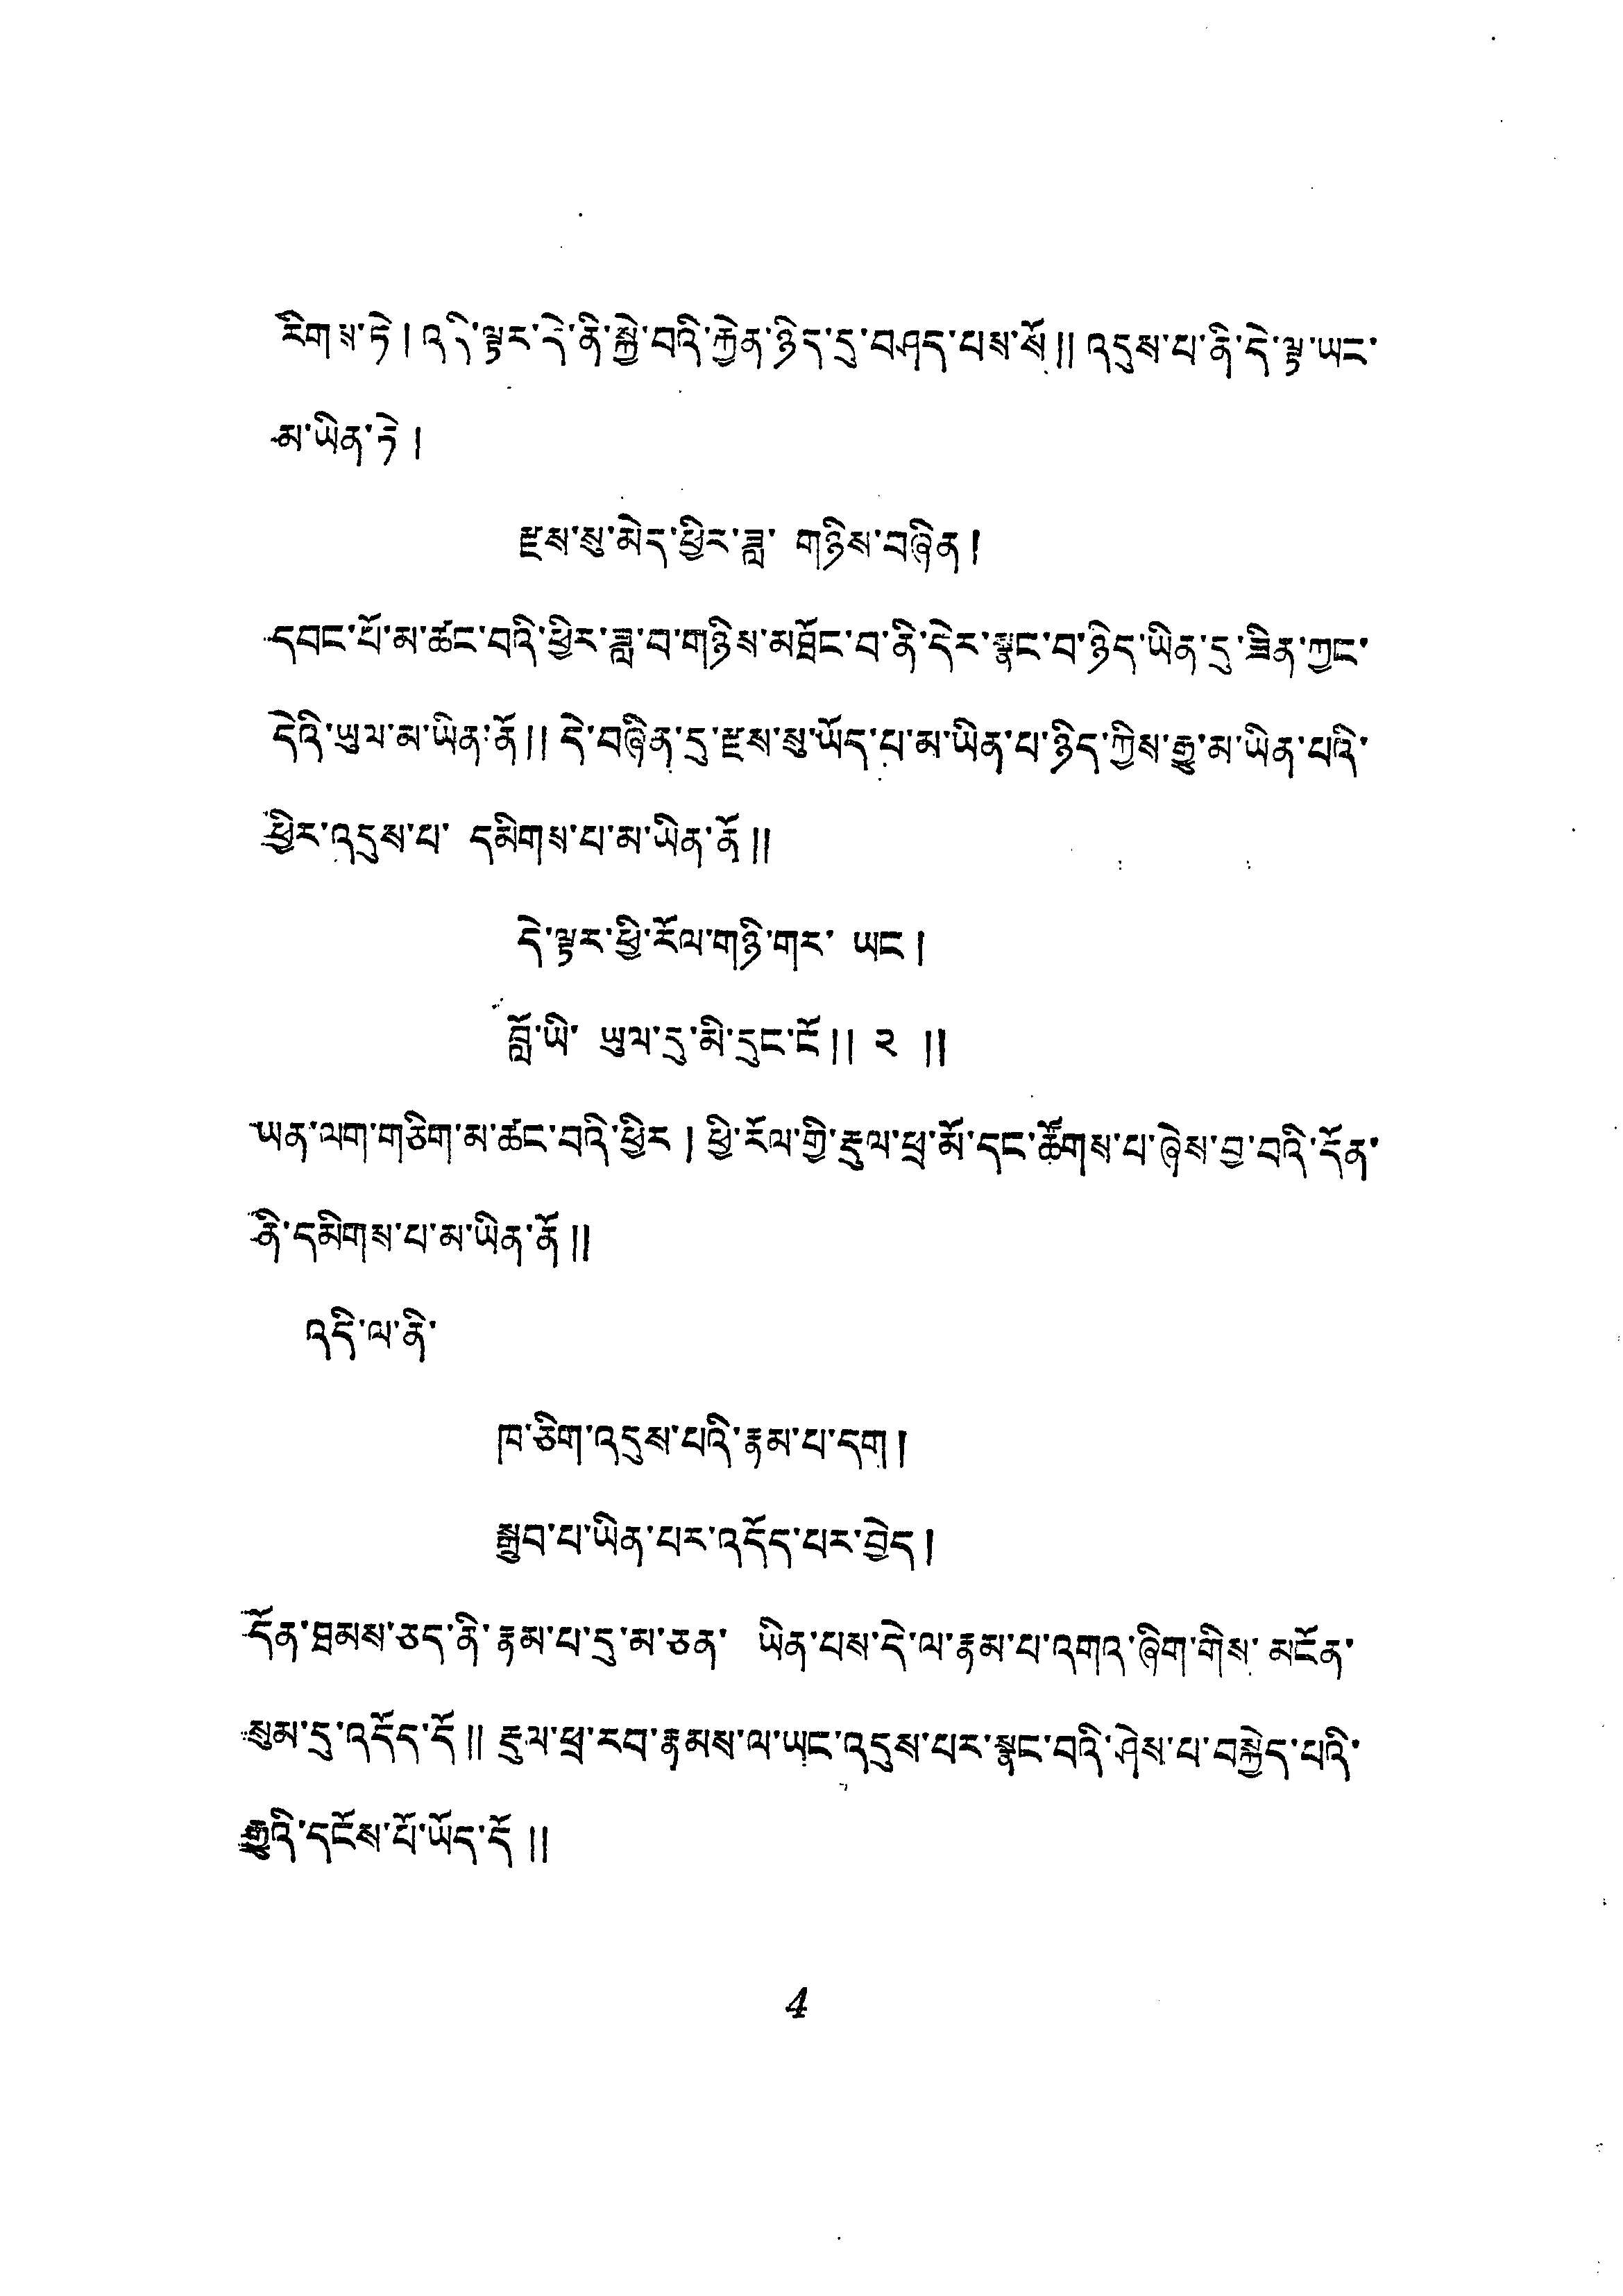 རིགས་ཏེ། འདི་ལྟར་དེ་ནི་སྐྱེ་བའི་རྐྱེན་ཉིད་དུ་བཤད་པས་སོ།། འདུས་པ་ནི་དེ་ལྟ་ཡང་
མ་ཡིན་ཏེ།
རྫས་སུ་མེད་ཕྱིར་ཟླ་ གཉིས་བཞིན།
དབང་པོ་མ་ཚང་བའི་ཕྱིར་ཟླ་བ་གཉིས་མཐོང་བ་ནི་དེར་སྣང་བ་ཉིད་ཡིན་དུ་ཟིན་ཀྱང་
དེའི་ཡུལ་མ་ཡིན་ནོ།། དེ་བཞིན་དུ་རྫས་སུ་ཡོད་པ་མ་ཡིན་པ་ཉིད་ཀྱིས་རྒྱུ་མ་ཡིན་པའི་
ཕྱིར་འདུས་པ་ དམིགས་པ་མ་ཡིན་ནོ།།
དེ་ལྟར་ཕྱི་རོལ་གཉི་གར་ ཡང།
བློ་ཡི་ ཡུལ་དུ་མི་དུང་ངོ།། ༢ །།
ཡན་ལག་གཅིག་མ་ཚང་བའི་ཕྱིར། ཕྱི་རོལ་གྱི་རྡུལ་ཕྲ་མོ་དང་ཚོགས་པ་ཞེས་བྱ་བའི་དོན་
ནི་དམིགས་པ་མ་ཡིན་ནོ།།
འདི་ལ་ནི་
ཁ་ཅིག་འདུས་པའི་རྣམ་པ་དག།
སྒྲུབ་པ་ཡིན་པར་འདོད་པར་བྱེད།
དོན་ཐམས་ཅད་ནི་རྣམ་པ་དུ་མ་ཅན་ ཡིན་པས་དེ་ལ་རྣམ་པ་འགའ་ཞིག་གིས་ མངོན་
སུམ་དུ་འདོད་དོ།། རྡུལ་ཕྲ་རབ་རྣམས་ལ་ཡང་འདུས་པར་སྣང་བའི་ཤེས་པ་བསྐྱེད་པའི་
རྒྱུའི་དངོས་པོ་ཡོད་དོ།།
4